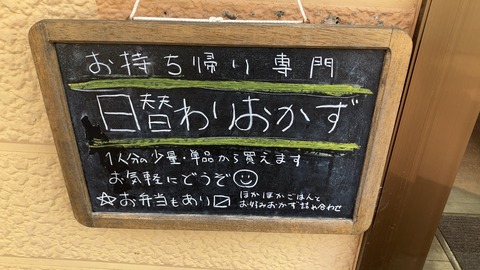 お持ち帰り専門
日替わりおかず
1人分の少量・単品から買えます
お気軽にどうぞ☺
☆お弁当もあり〼
ほかほかごはんと
お好みおかず詰め合わせ